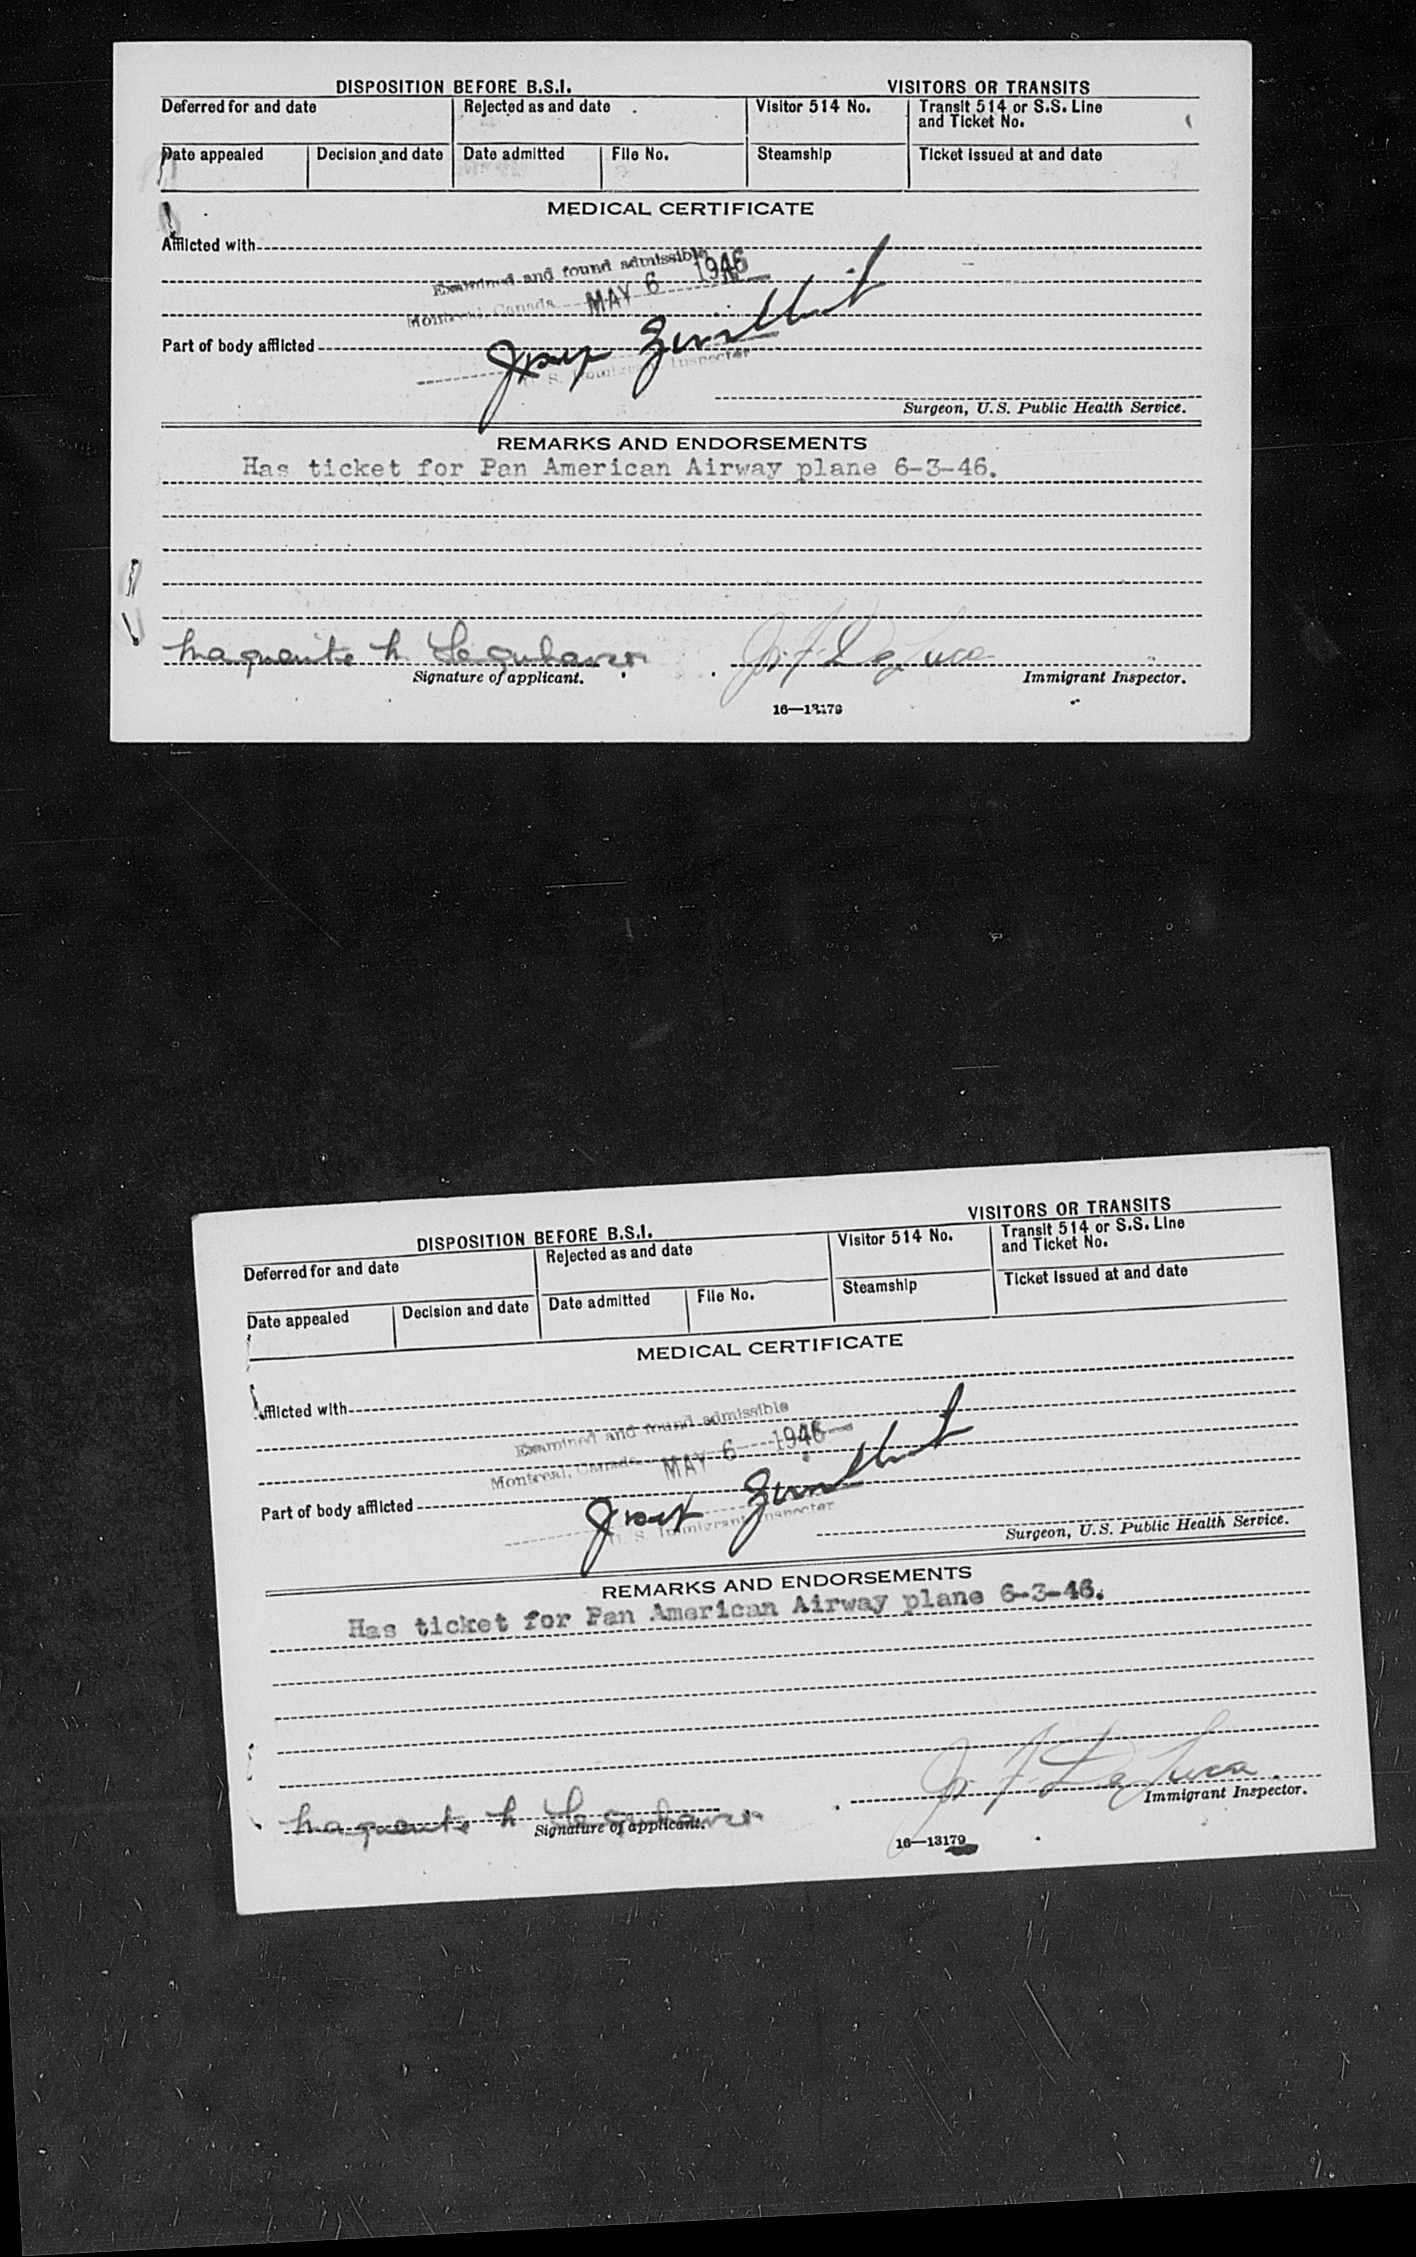 DISPOSITION BEFORE B.S.I. VISITORS OR TRANSITS
Deferred for and date Rejected as and date Visitor 514 No. Transit 514 or S.S. Line
and Ticket No.
Date appealed Decision and date Date admitted File No. Steamship Ticket issued at and date
MEDICAL CERTIFICATE
Afflicted with
Examined and found admissible
Montreal, Canada MAY 6 1946
Part of body afflicted
U. S. Immigrant Inspector
Surgeon, U.S. Public Health Service.
REMARKS AND ENDORSEMENTS
Has ticket for Pan American Airway plane 6-3-46.
J. F. De Luca
Signature of applicant. Immigrant Inspector.
16—13179
DISPOSITION BEFORE B.S.I. VISITORS OR TRANSITS
Deferred for and date Rejected as and date Visitor 514 No. Transit 514 or S.S. Line
and Ticket No.
Date appealed Decision and date Date admitted File No. Steamship Ticket issued at and date
MEDICAL CERTIFICATE
Afflicted with
Examined and found admissible
Montreal, Canada MAY 6 1946
Part of body afflicted
U. S. Immigrant Inspector
Surgeon, U.S. Public Health Service.
REMARKS AND ENDORSEMENTS
Has ticket for Pan American Airway plane 6-3-46.
J. F. De Luca
Signature of applicant. Immigrant Inspector.
16—13179